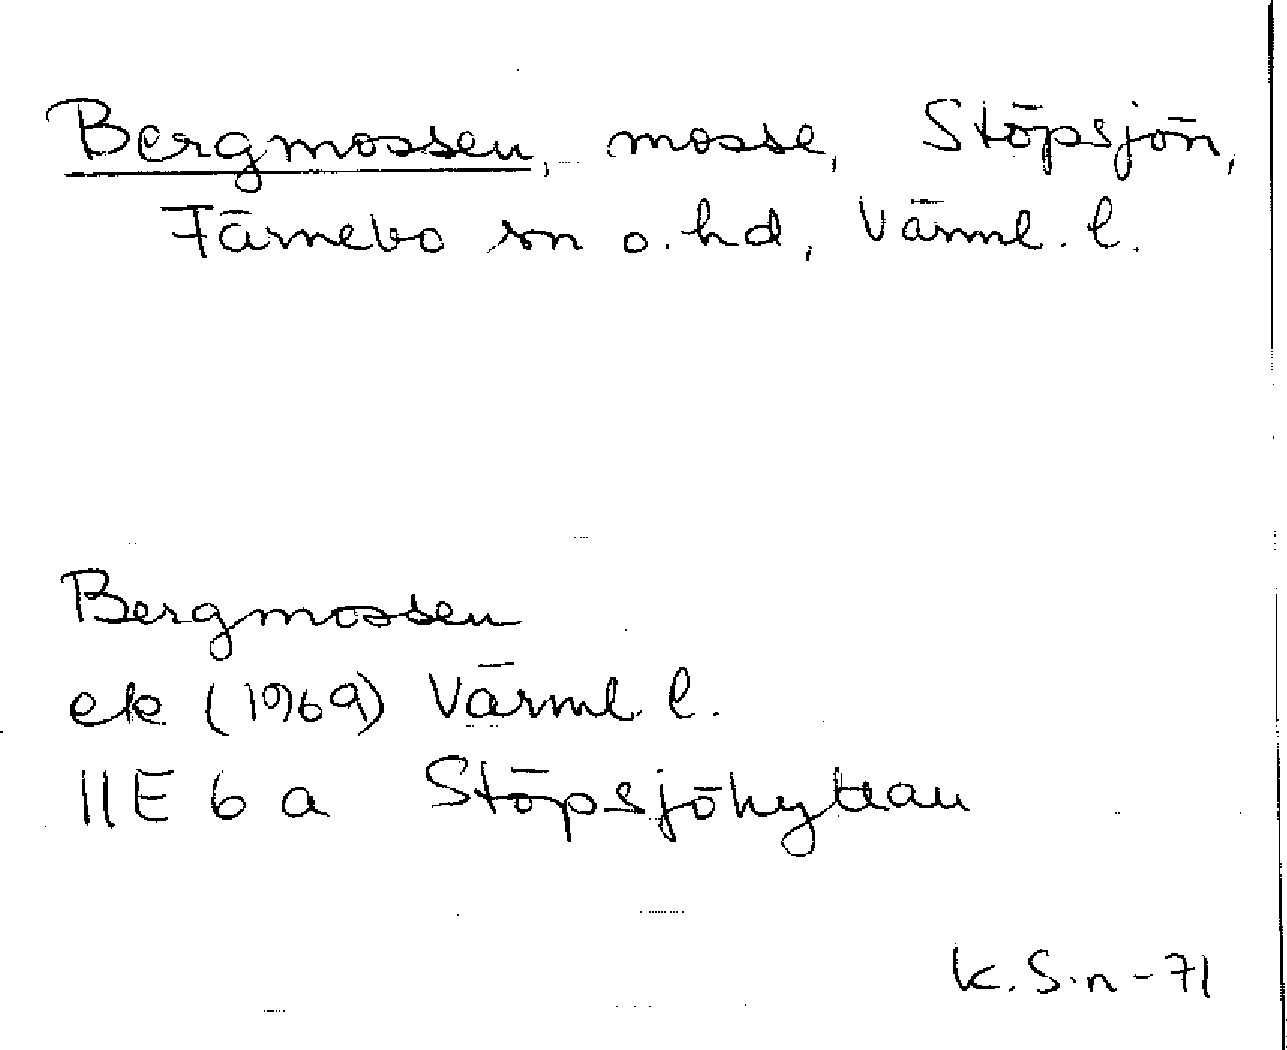 Bergmossen, mosse, Stöpsjön,
Färnebo sn o. hd, Värml. l.
Bergmossen
ek (1969) Värml. l.
11E 6 a Stöpsjöhyttan
K. S-n -71